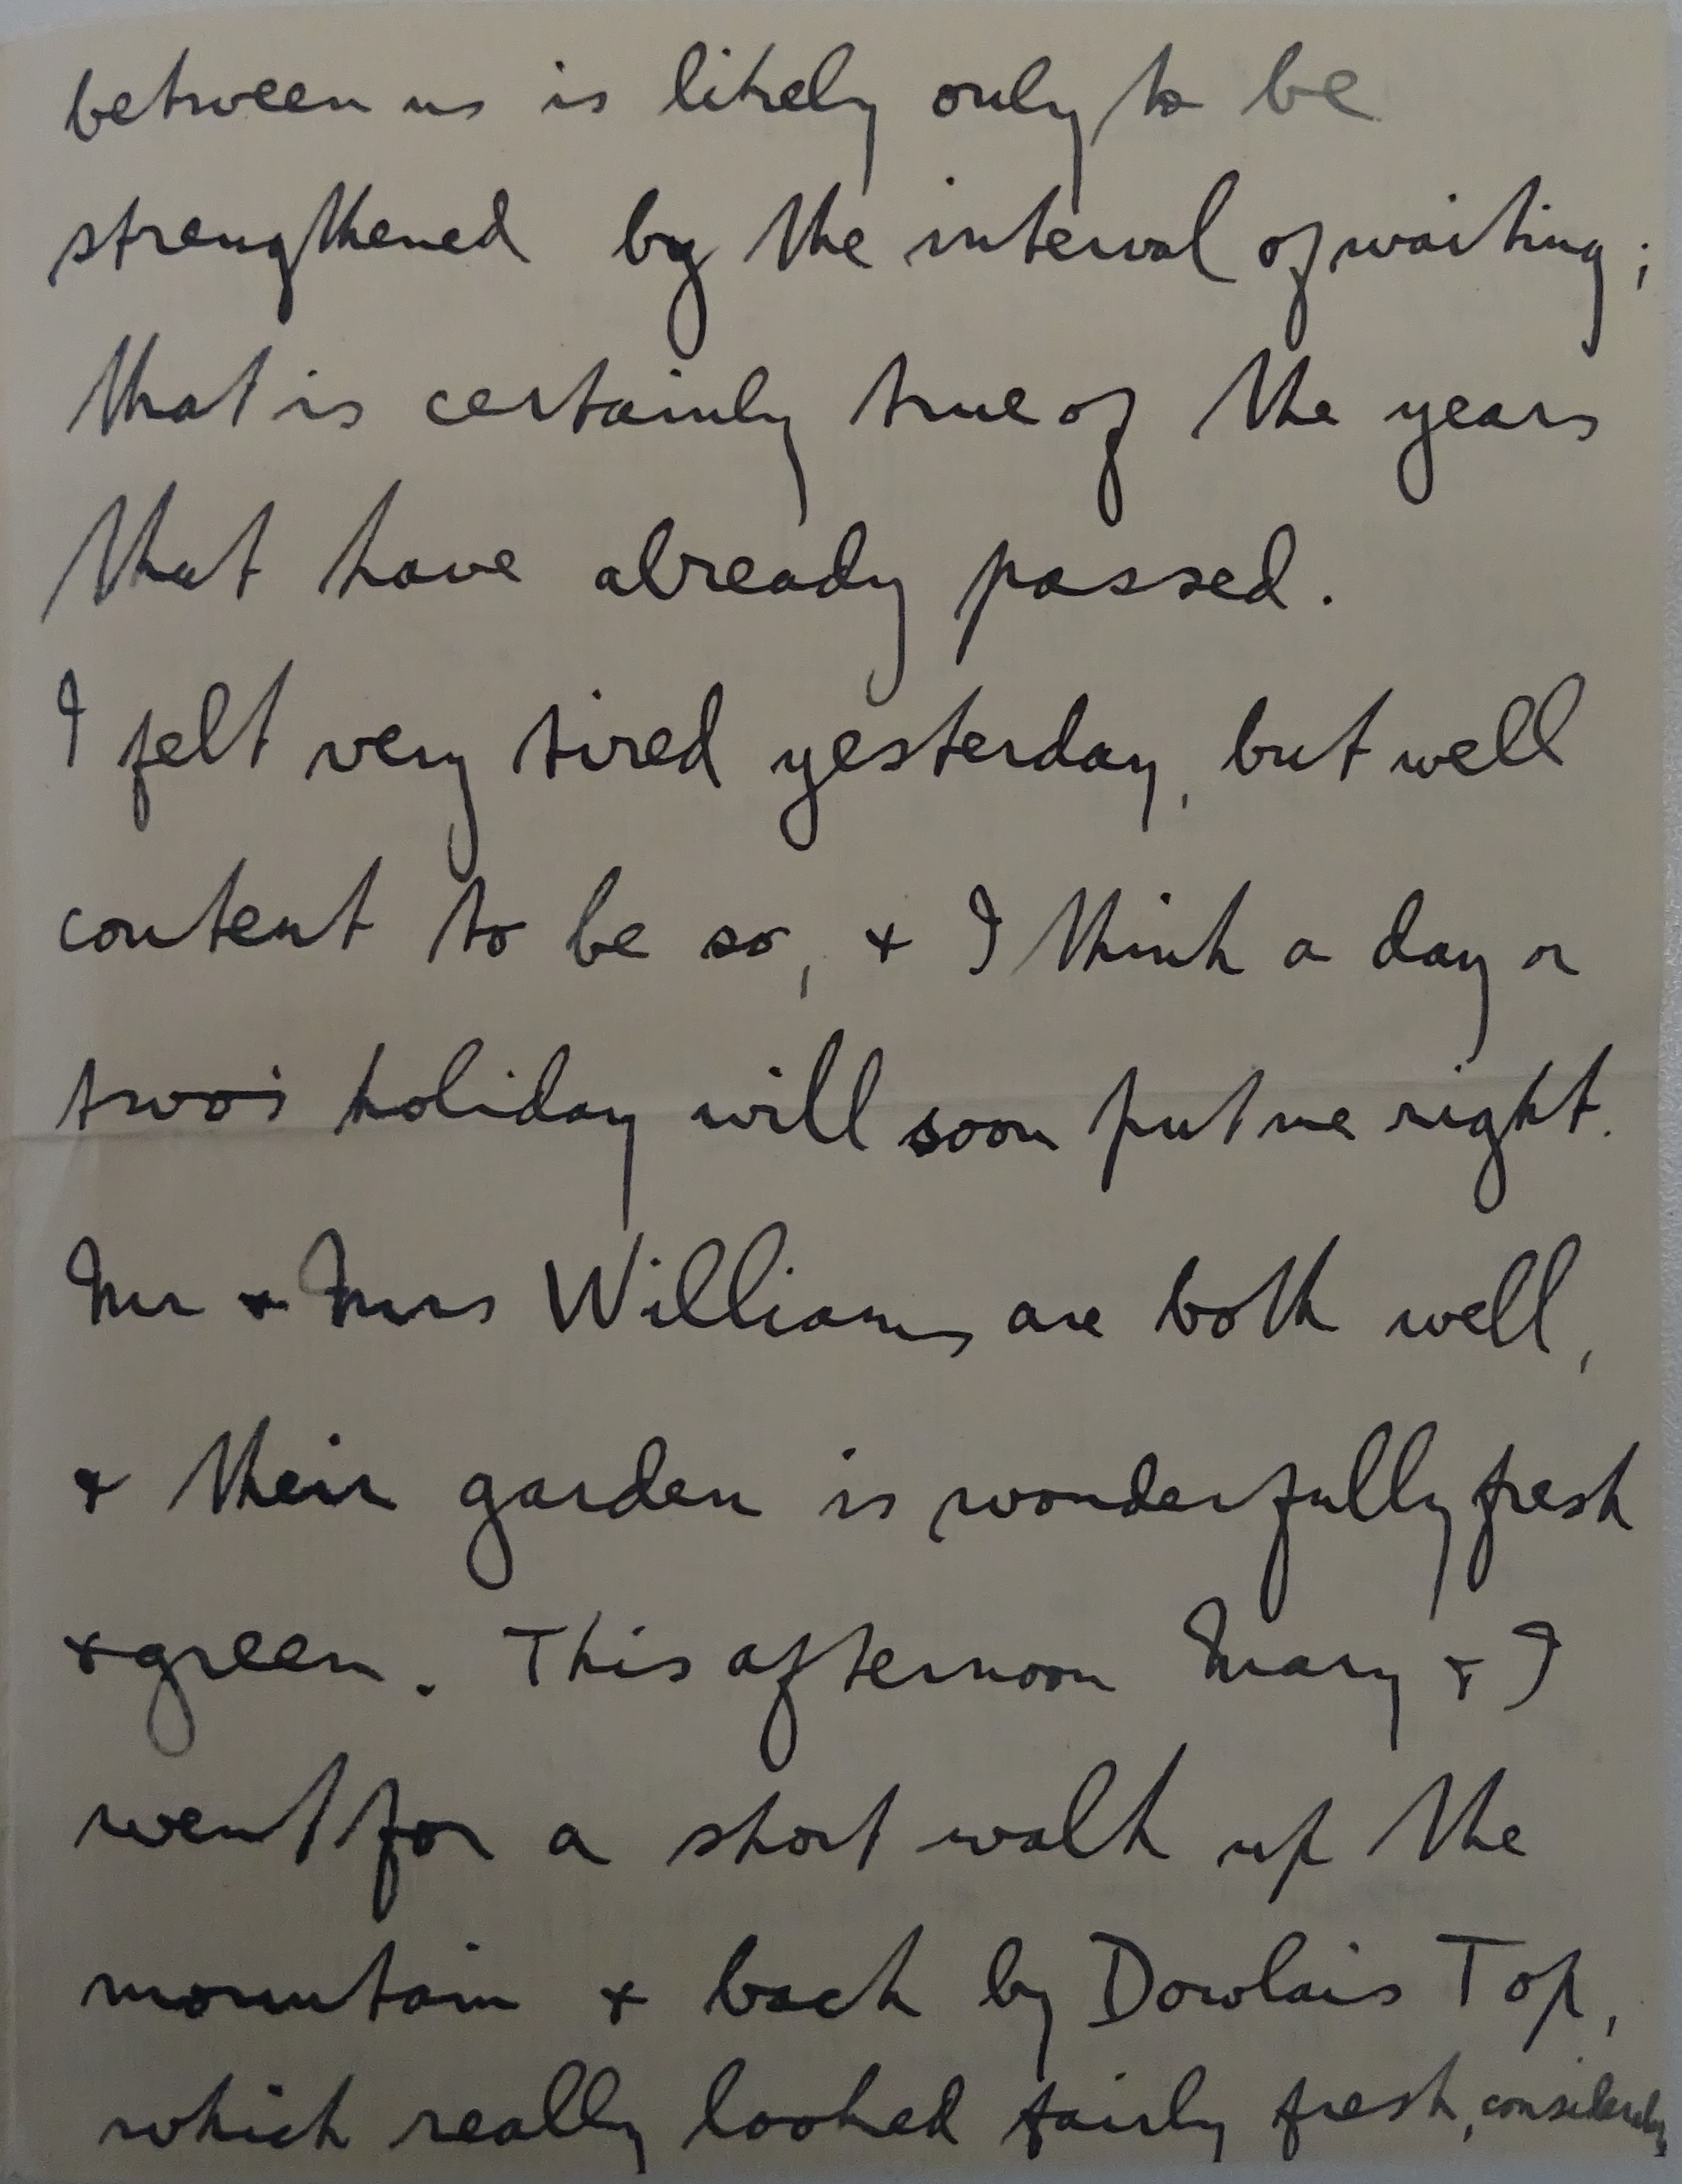 between us is likely only to be
strengthened by the interval of waiting;
that is certainly true of the years
that have already passed.
I felt very tired yesterday, but well
content to be so, & I think a day or
two's holiday will soon put me right.
Mr & Mrs Williams are both well,
& their garden is wonderfully fresh
& green. This afternoon Mary & I
went for a short walk up the
mountain & back by Dowlais Top,
which really looked fairly fresh,